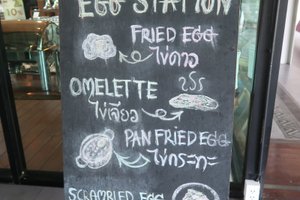 EGG STATION
FRIED EGG
ไข่ดาว
OMELETTE
ไข่เจียว
PAN FRIED EGG
ไข่กระทะ
SCRAMBLED EGG